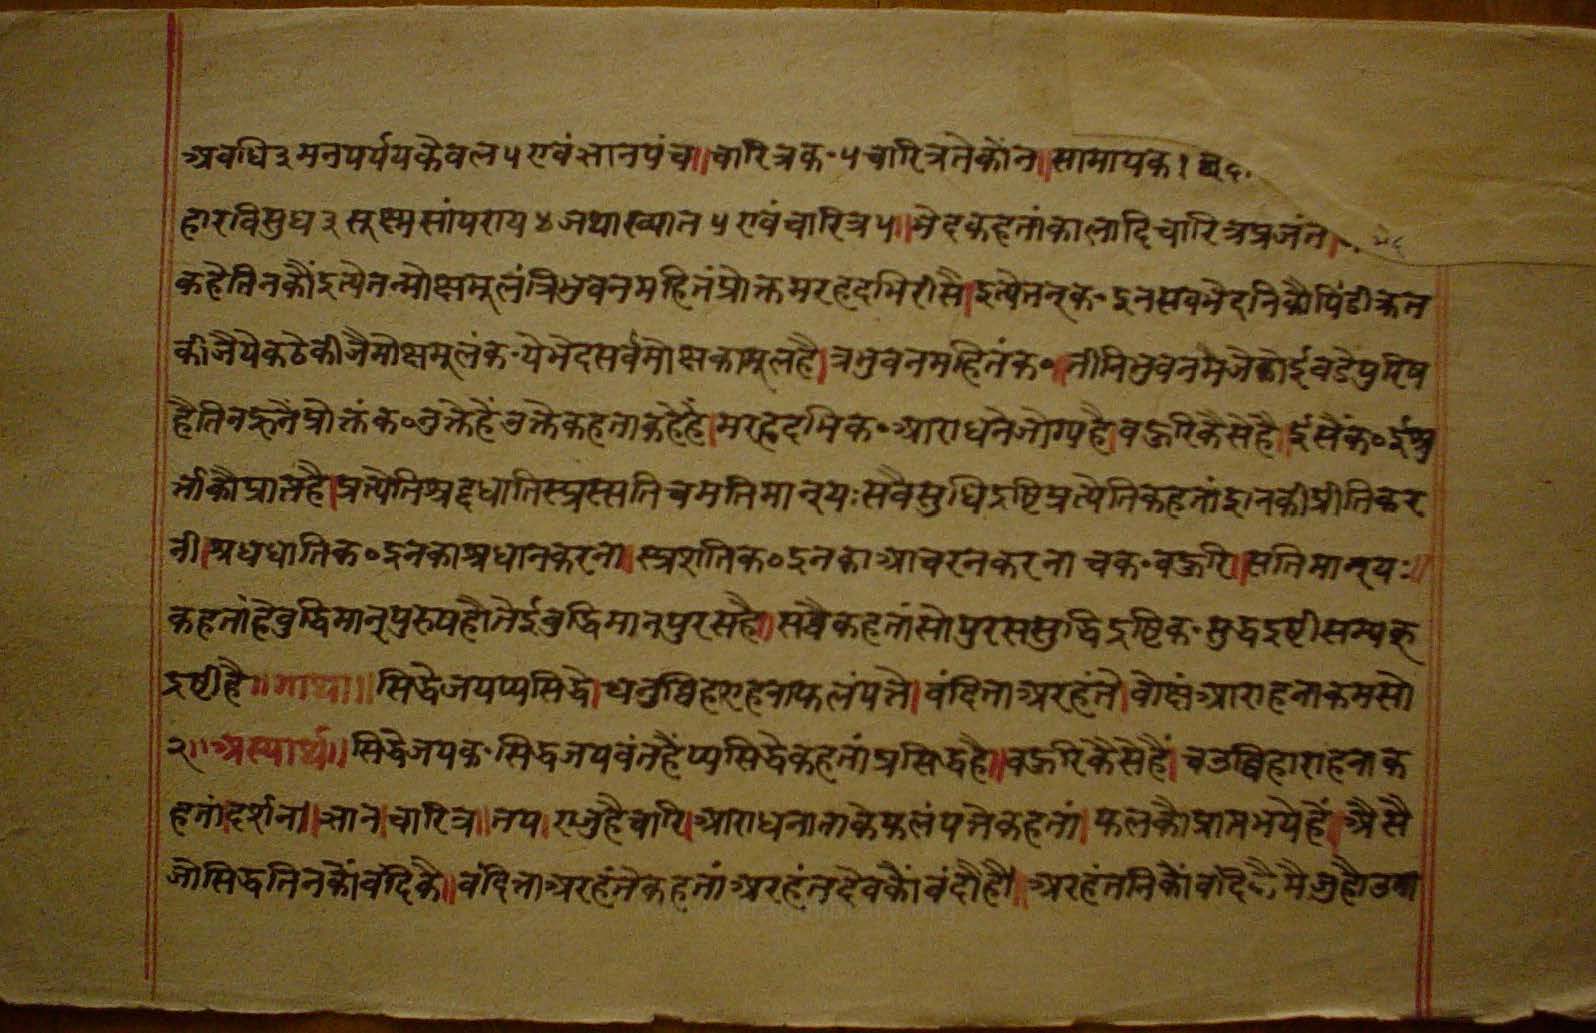 अवधि ३ मनपर्यय केवल ५ एवं ज्ञान पंच॥ चारित्र क॰ ५ चारित्र ते कोंन॥ सामायक १
हारविसुध ३ सूक्ष्मसांपराय ४ जथाख्यात ५ एवं चारित्र ५॥ भेद कहतां कालादि चारित्र
कहे तिनकौं इत्येतन्मोक्षमूलं त्रिभुवनमहितं प्रोक्तमरहदभिरीसै। इत्येतत् क॰ इन सब भेदनिकौ पिंडीकृत
कीजै ये कठे कीजै मोक्षमूलं क॰ ये भेद सर्व मोक्ष का मूल है। त्रभुवनमहितं क॰॥ तीनि भुवन मै जे कोई वडे पुरिष
है तिनहूनैं प्रोक्तं क॰ जुक्ते हैं जुक्ते कहता कहे हैं। मरहदभि क॰ आराधने जोग्य है। वहुरि कैसे है। ईसैं क॰ ईश्व
र्ताकौ प्राप्त है। प्रत्येति श्रद्दधाति स्प्रस्सति च मतिमान् यः स वै सुधिद्रष्टि प्रत्येति कहतां इनकी प्रीति कर
नी। श्रधधाति क॰ इनका श्रधान करना। स्प्रशति क॰ इनका आचरन करना च क॰ वहुरि॥ मतिमान् यः॥
कहतां है बुद्धिमान् पुरुष हौ तेई बुद्धिमान् पुरस है॥ स वै कहतां सो पुरस सुद्धिद्रष्टि क॰ सुद्धद्रष्टी सम्यक्
द्रष्टी है॥ गाथा॥ सिद्धे जयप्पसिद्धे। चउव्विहाराहनाफलं पत्ते। वंदित्ता अरहंते। वोछं आराहना कमसो
२॥ अस्यार्थ॥ सिद्धे जय क॰ सिद्ध जयवंत हैं प्पसिद्धे कहतां प्रसिद्ध है॥ वहुरि कैसे हैं। चउव्विहाराहना क
हतां दर्शन॥ ज्ञान। चारित्र॥ तप। एजु है चारि। आराधना ताके फलं पत्ते कहतां। फलकौ प्राप्त भये हैं। अैसै
जो सिद्ध तिनकौं वंदिकै॥ वंदित्ता अरहंते कहतां अरहंतदेवकौं वंदौ हौं॥ अरहंतनिकौं वंदि मै जु हौ